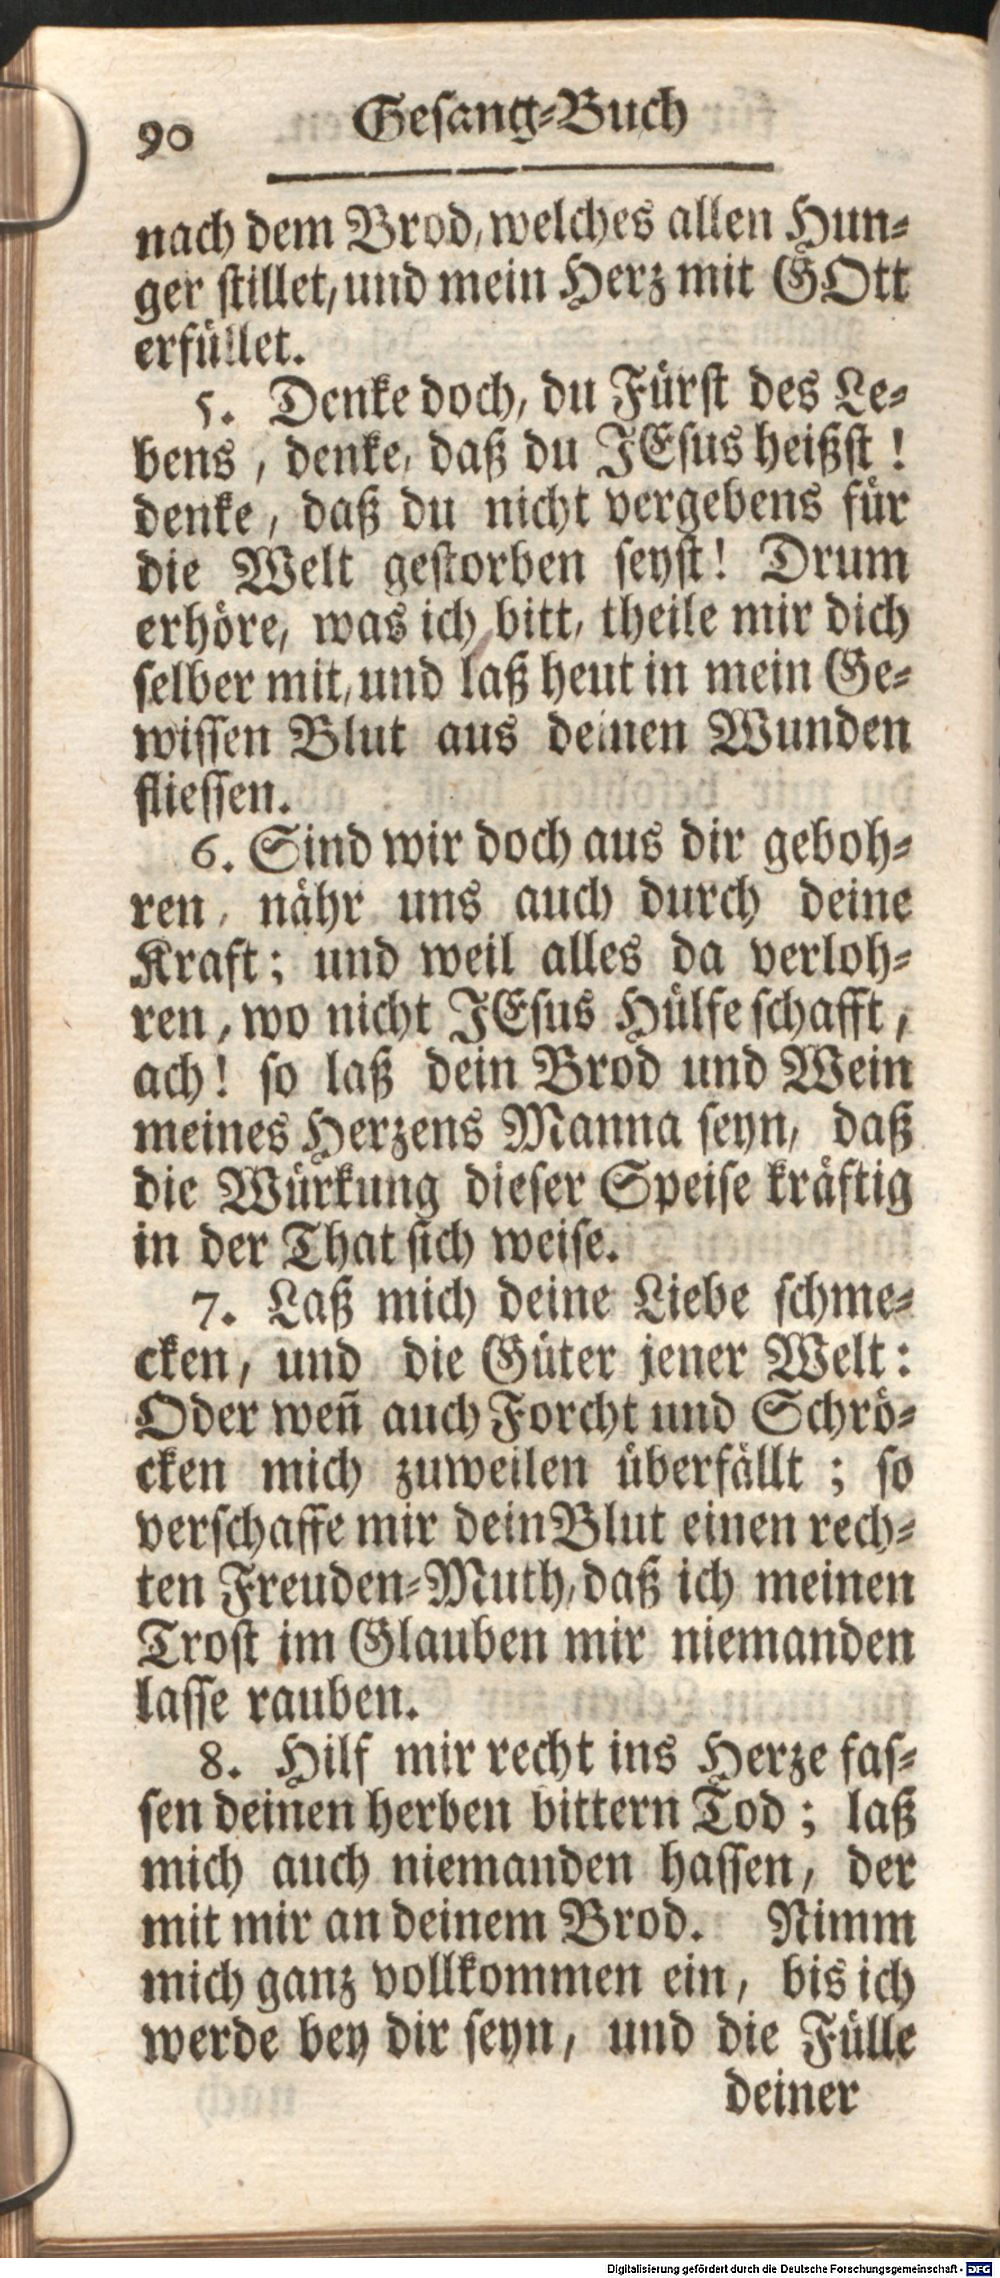 90 Gesang-Buch
nach dem Brod, welches allen Hun-
ger stillet, und mein Herz mit GOtt
erfüllet.
5. Denke doch, du Fürst des Le-
bens, denke, daß du JEsus heißst!
denke, daß du nicht vergebens für
die Welt gestorben seyst! Drum
erhöre, was ich bitt, theile mir dich
selber mit, und laß heut in mein Ge-
wissen Blut aus deinen Wunden
fliessen.
6. Sind wir doch aus dir geboh-
ren, nähr uns auch durch deine
Kraft; und weil alles da verloh-
ren, wo nicht JEsus Hülfe schafft,
ach! so laß dein Brod und Wein
meines Herzens Manna seyn, daß
die Würkung dieser Speise kräftig
in der That sich weise.
7. Laß mich deine Liebe schme-
cken, und die Güter jener Welt:
Oder weñ auch Forcht und Schrö-
cken mich zuweilen überfällt; so
verschaffe mir dein Blut einen rech-
ten Freuden-Muth, daß ich meinen
Trost im Glauben mir niemanden
lasse rauben.
8. Hilf mir recht ins Herze fas-
sen deinen herben bittern Tod; laß
mich auch niemanden hassen, der
mit mir an deinem Brod. Nimm
mich ganz vollkommen ein, bis ich
werde bey dir seyn, und die Fülle
deiner
Digitalisierung gefördert durch die Deutsche Forschungsgemeinschaft - DFG